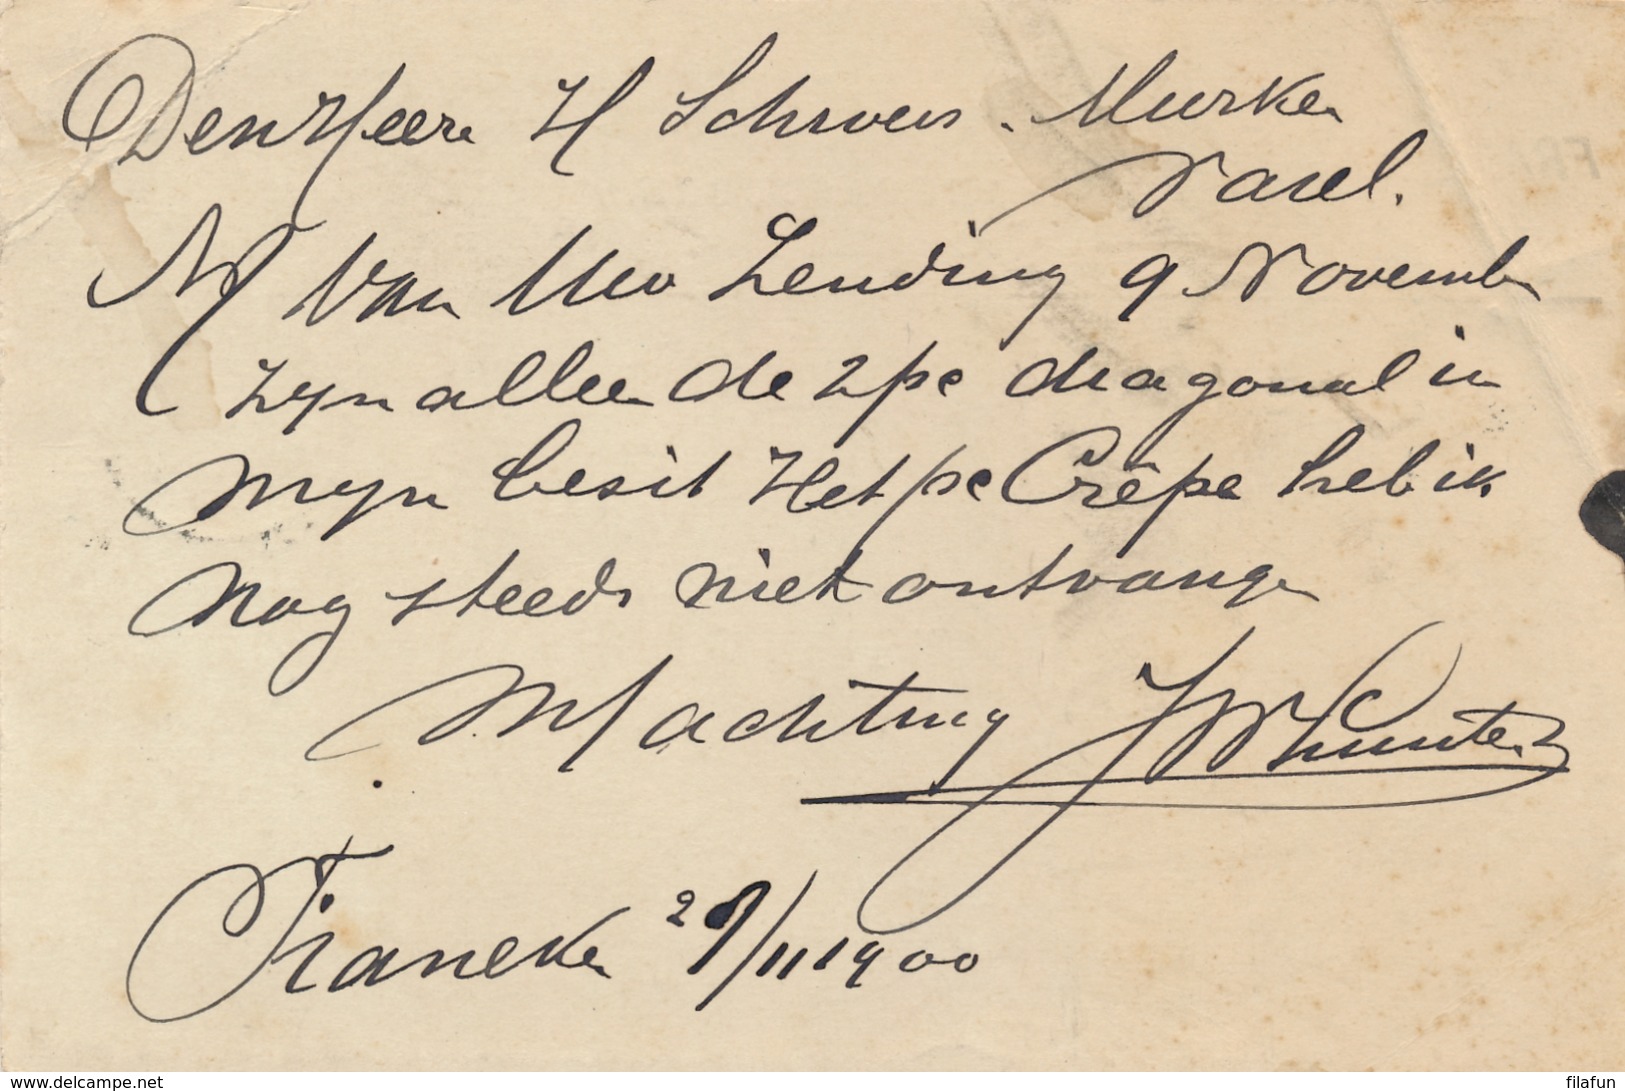 Den Heere H Schroers. Murken
Varel.
M Van Uw Zending 9 November
zyn alleen de 2 ps dragonal in
myn besit Het ps Crêpe heb ik
nog steeds niet ontvangen
Machting
Franeker 29/11 1900
www.delcampe.net
filafun